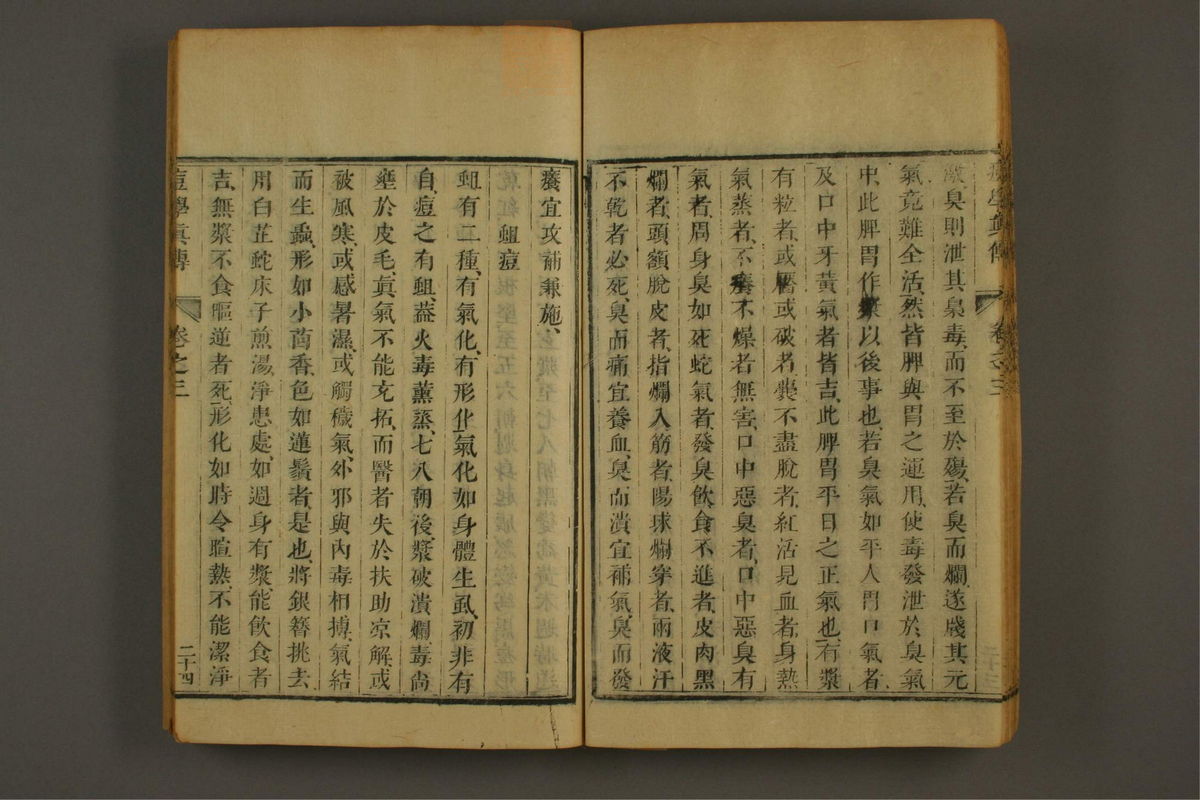 痘學眞傳 卷之三 二十三
敵臭則泄其臭毒而不至於殤若臭而爛遂戕其元
氣竟難全活然皆脾與胃之運用使毒發泄於臭氣
中此脾胃作漿以後事也若臭氣如平人胃口氣者
及口中牙黃氣者皆吉此脾胃平日之正氣也有漿
有粒者或靨或破者囊不盡脫者紅活見血者身熱
氣蒸者不癢不燥者無害口中惡臭者口中惡臭有
氣者周身臭如死蛇氣者發臭飲食不進者皮肉黑
爛者頭額脫皮者指爛入筋者陽球爛穿者兩液汗
不乾者必死臭而痛宜養血臭而潰宜補氣臭而發
癢宜攻補兼施
乾紅蛆痘
蛆有二種有氣化有形化氣化如身體生虱初非有
自痘之有蛆葢火毒薰蒸七八朝後漿破潰爛毒尙
壅於皮毛眞氣不能充拓而醫者失於扶助凉解或
被風寒或感暑濕或觸穢氣外邪與內毒相搏氣結
而生蟲形如小茴香色如蓮鬚者是也將銀簪挑去
用白芷蛇床子煎湯淨患處如週身有漿能飲食者
吉無漿不食嘔逆者死形化如時令暄熱不能潔淨
痘學眞傳 卷之三 二十四